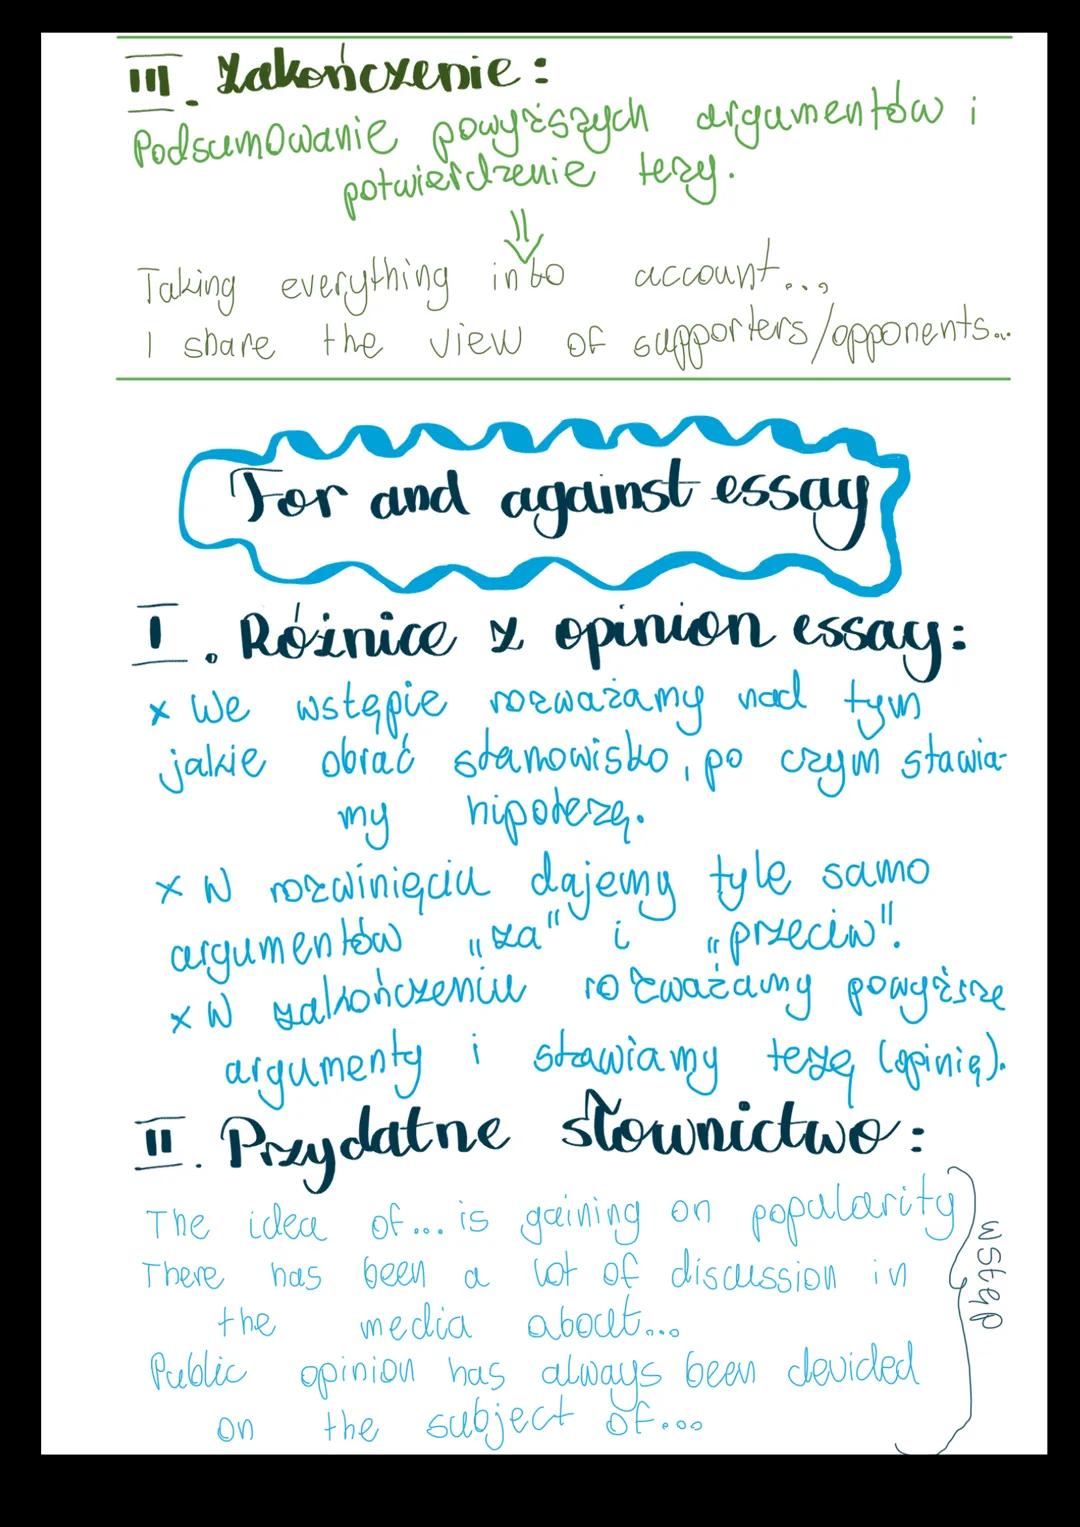 III. Zakończenie:
Podsumowanie powyższych argumentów i
potwierdzenie tezy.
Taking everything into account...,
I share the view of supporters/opponents...
For and against essay
I. Różnice z opinion essay:
x We wstępie rozważamy nad tym
jakie obrać stanowisko, po czym stawia-
my hipotezę.
x W rozwinięciu dajemy tyle samo
argumentów „za" i „przeciw".
x W zakończeniu rozważamy powyższe
argumenty i stawiamy tezę (opinię).
II. Przydatne słownictwo:
The idea of... is gaining on popularity
There has been a lot of discussion in
the media about...
Public opinion has always been devided
on the subject of...
wstęp